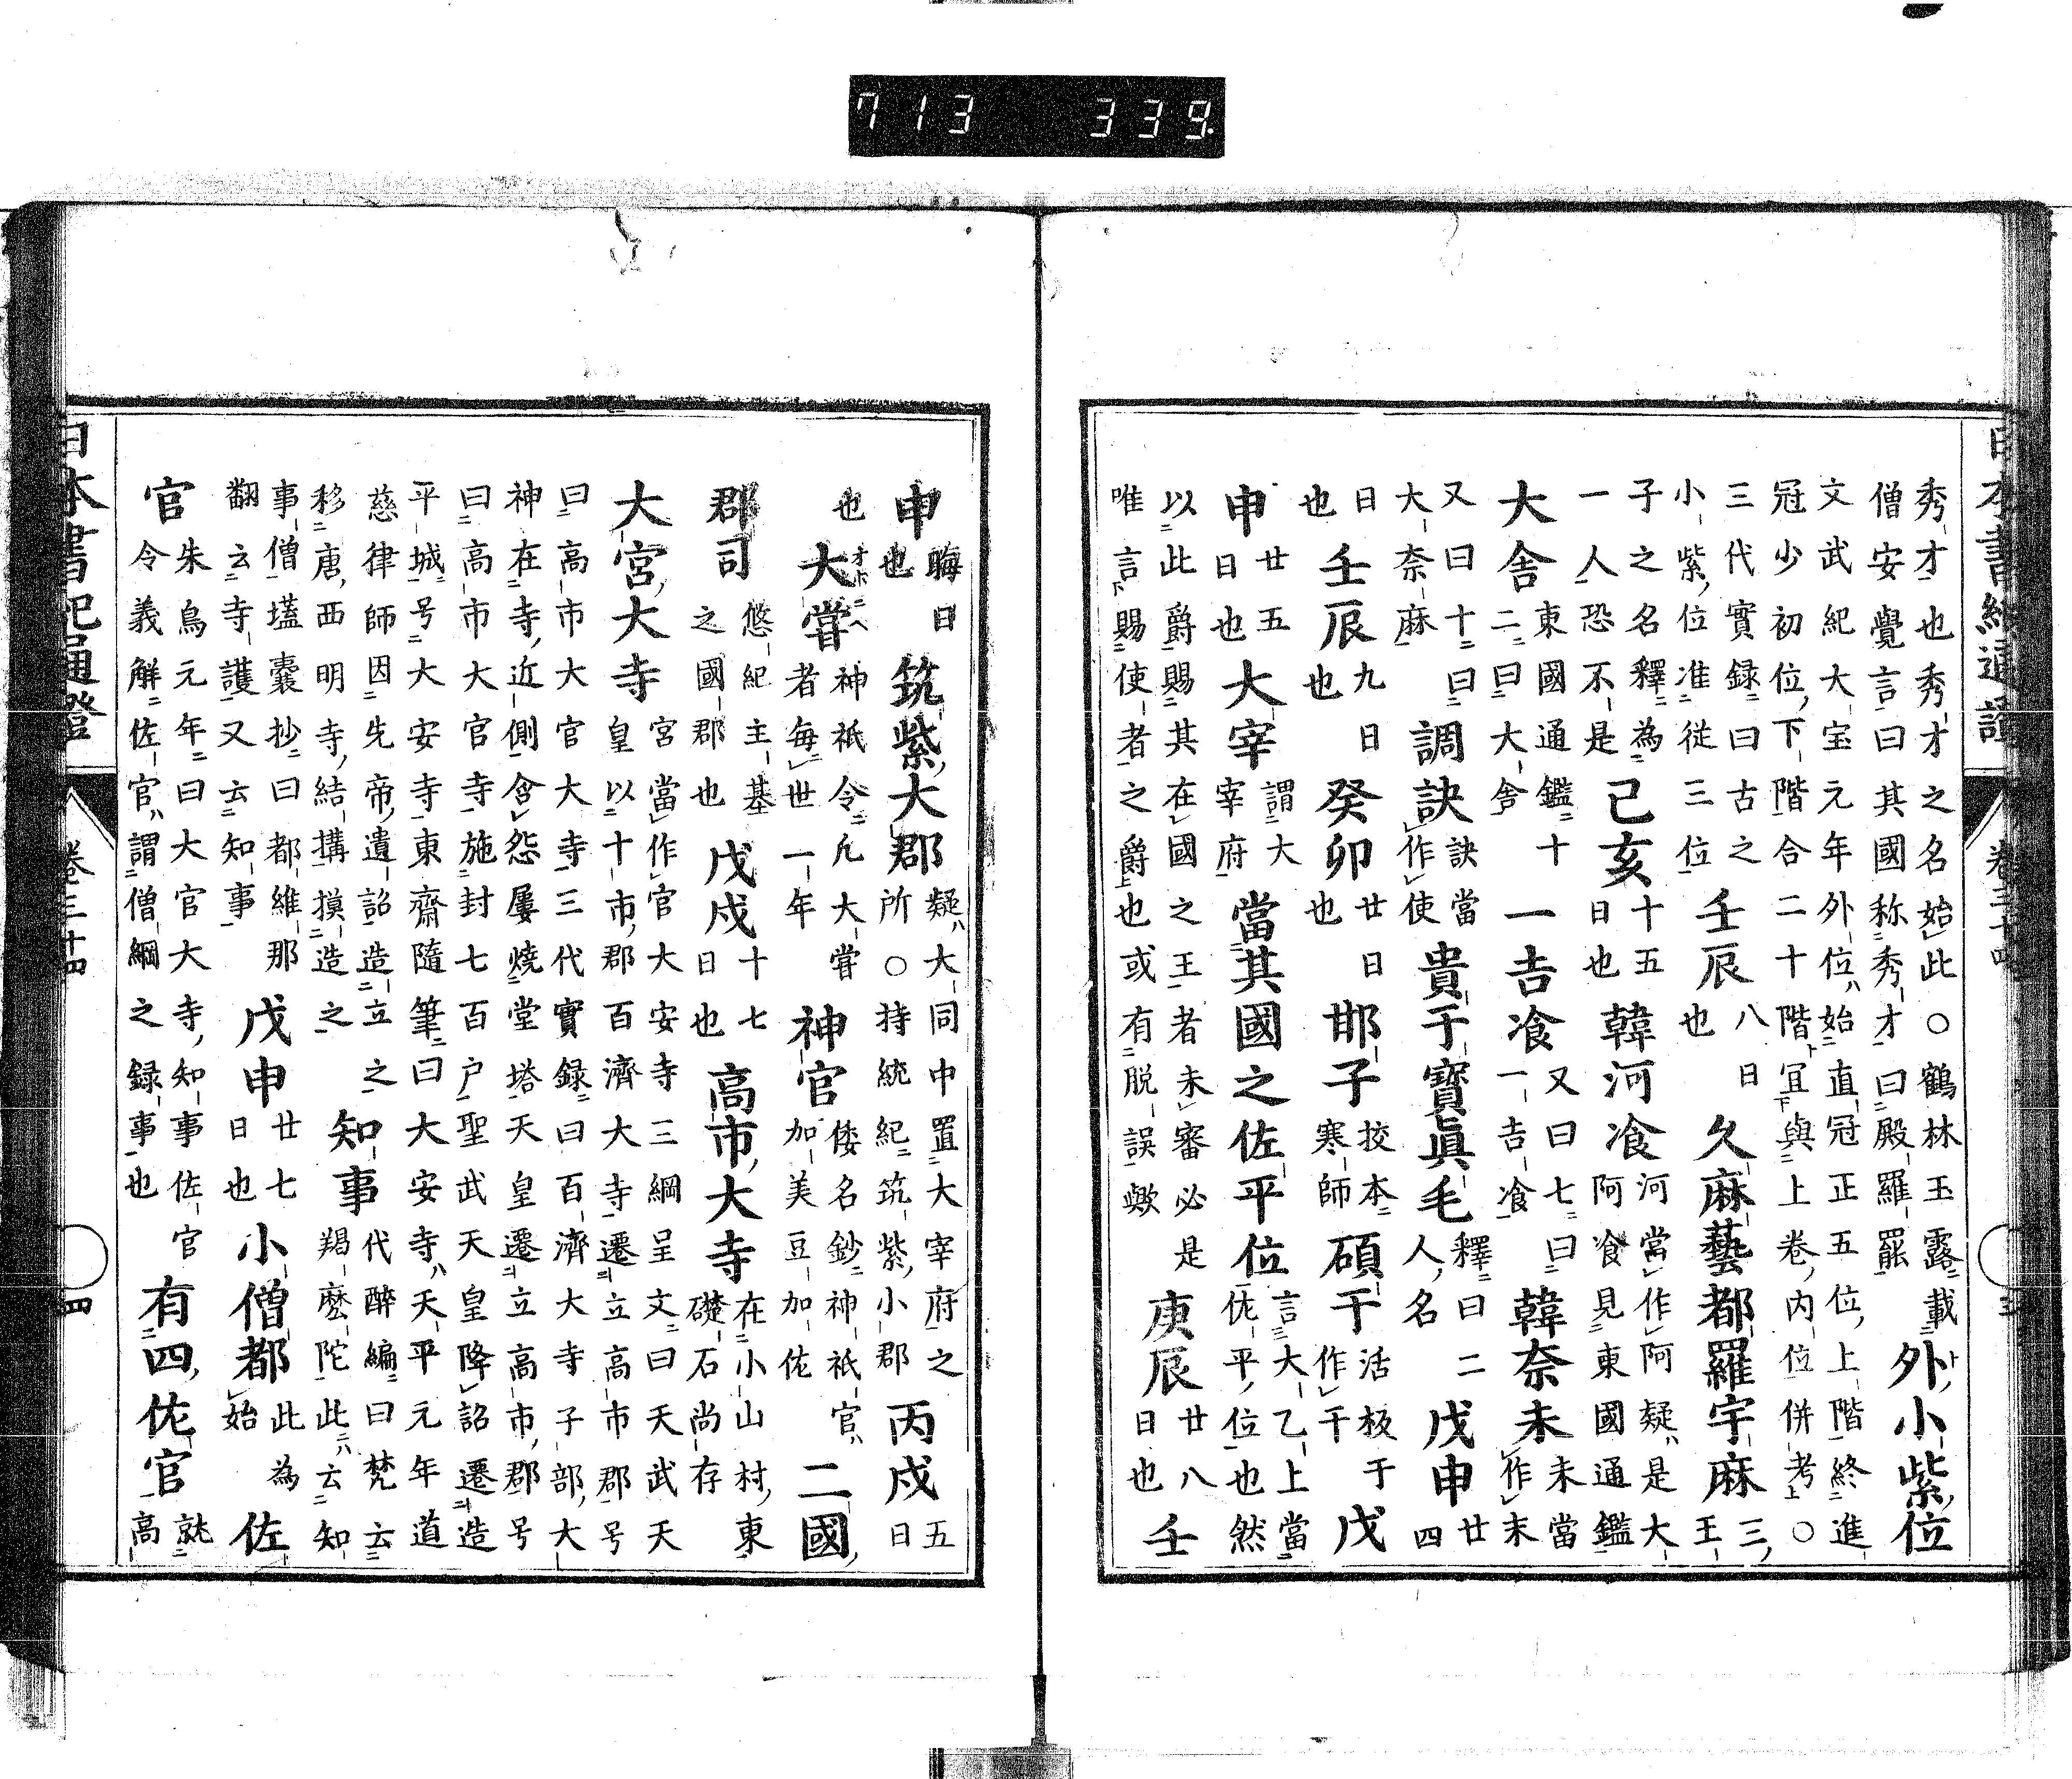 713 339
日本書紀通證 卷三十四 三
秀才也秀才之名始此○鶴林玉露載
僧安覺言曰其國称秀才曰殿羅罷
外小紫位
文武紀大宝元年外位始直冠正五位上階終進
冠少初位下階合二十階宜與上卷内位併考○
三代實録曰古之
小紫位准從三位
壬辰
八日
也
久麻藝都羅宇麻
三
王
子之名釋為
一人恐不是
己亥
十五
日也
韓河飡
河當作阿疑是大
阿飡見東國通鑑
大舎
東國通鑑十
二曰大舎
一吉飡
又曰七曰
一吉飡
韓奈末
末當
作末
又曰十曰
大奈麻
調訣
訣當
作使
貴干寶眞毛
釋曰二
人名
戊申
廿四
日
也
壬辰
九日
也
癸卯
廿日
也
邯子
挍本
寒師
碩干
活板于
作干
戊
申
廿五
日也
大宰
謂大
宰府
當其國之佐平位
言大乙上當
佐平位也然
以此爵賜其在國之王者未審必是
唯言賜使者之爵也或有脱誤歟
庚辰
廿八
日也
壬
申
晦日
也
筑紫大郡
疑大同中置大宰府之
所○持統紀筑紫小郡
丙戌
五日
也
大嘗
オホニヘ
神祇令凡大嘗
者毎世一年
神官
倭名鈔神祇官
加美豆加佐
二國
郡司
悠紀主基
之國郡也
戊戌
十七
日也
高市大寺
在小山村東
礎石尚存
大宮大寺
宮當作官大安寺三綱呈文曰天武天
皇以十市郡百濟大寺遷立高市郡号
曰高市大官大寺三代實録曰百濟大寺子部大
神在寺近側含怨屢燒堂塔天皇遷立高市郡号
曰高市大官寺施封七百戸聖武天皇降詔遷造
平城号大安寺東齋隨筆曰大安寺天平元年道
慈律師因先帝遺詔造立之
移唐西明寺結搆摸造之
知事
代醉編曰梵云
羯麽陀此云知
事僧壒囊抄曰都維那
翻云寺護又云知事
戊申
廿七
日也
小僧都
此為
始
佐
官
朱鳥元年曰大官大寺知事佐官
令義解佐官謂僧綱之録事也
有四佐官
就
高
日本書紀通證 卷三十四 四